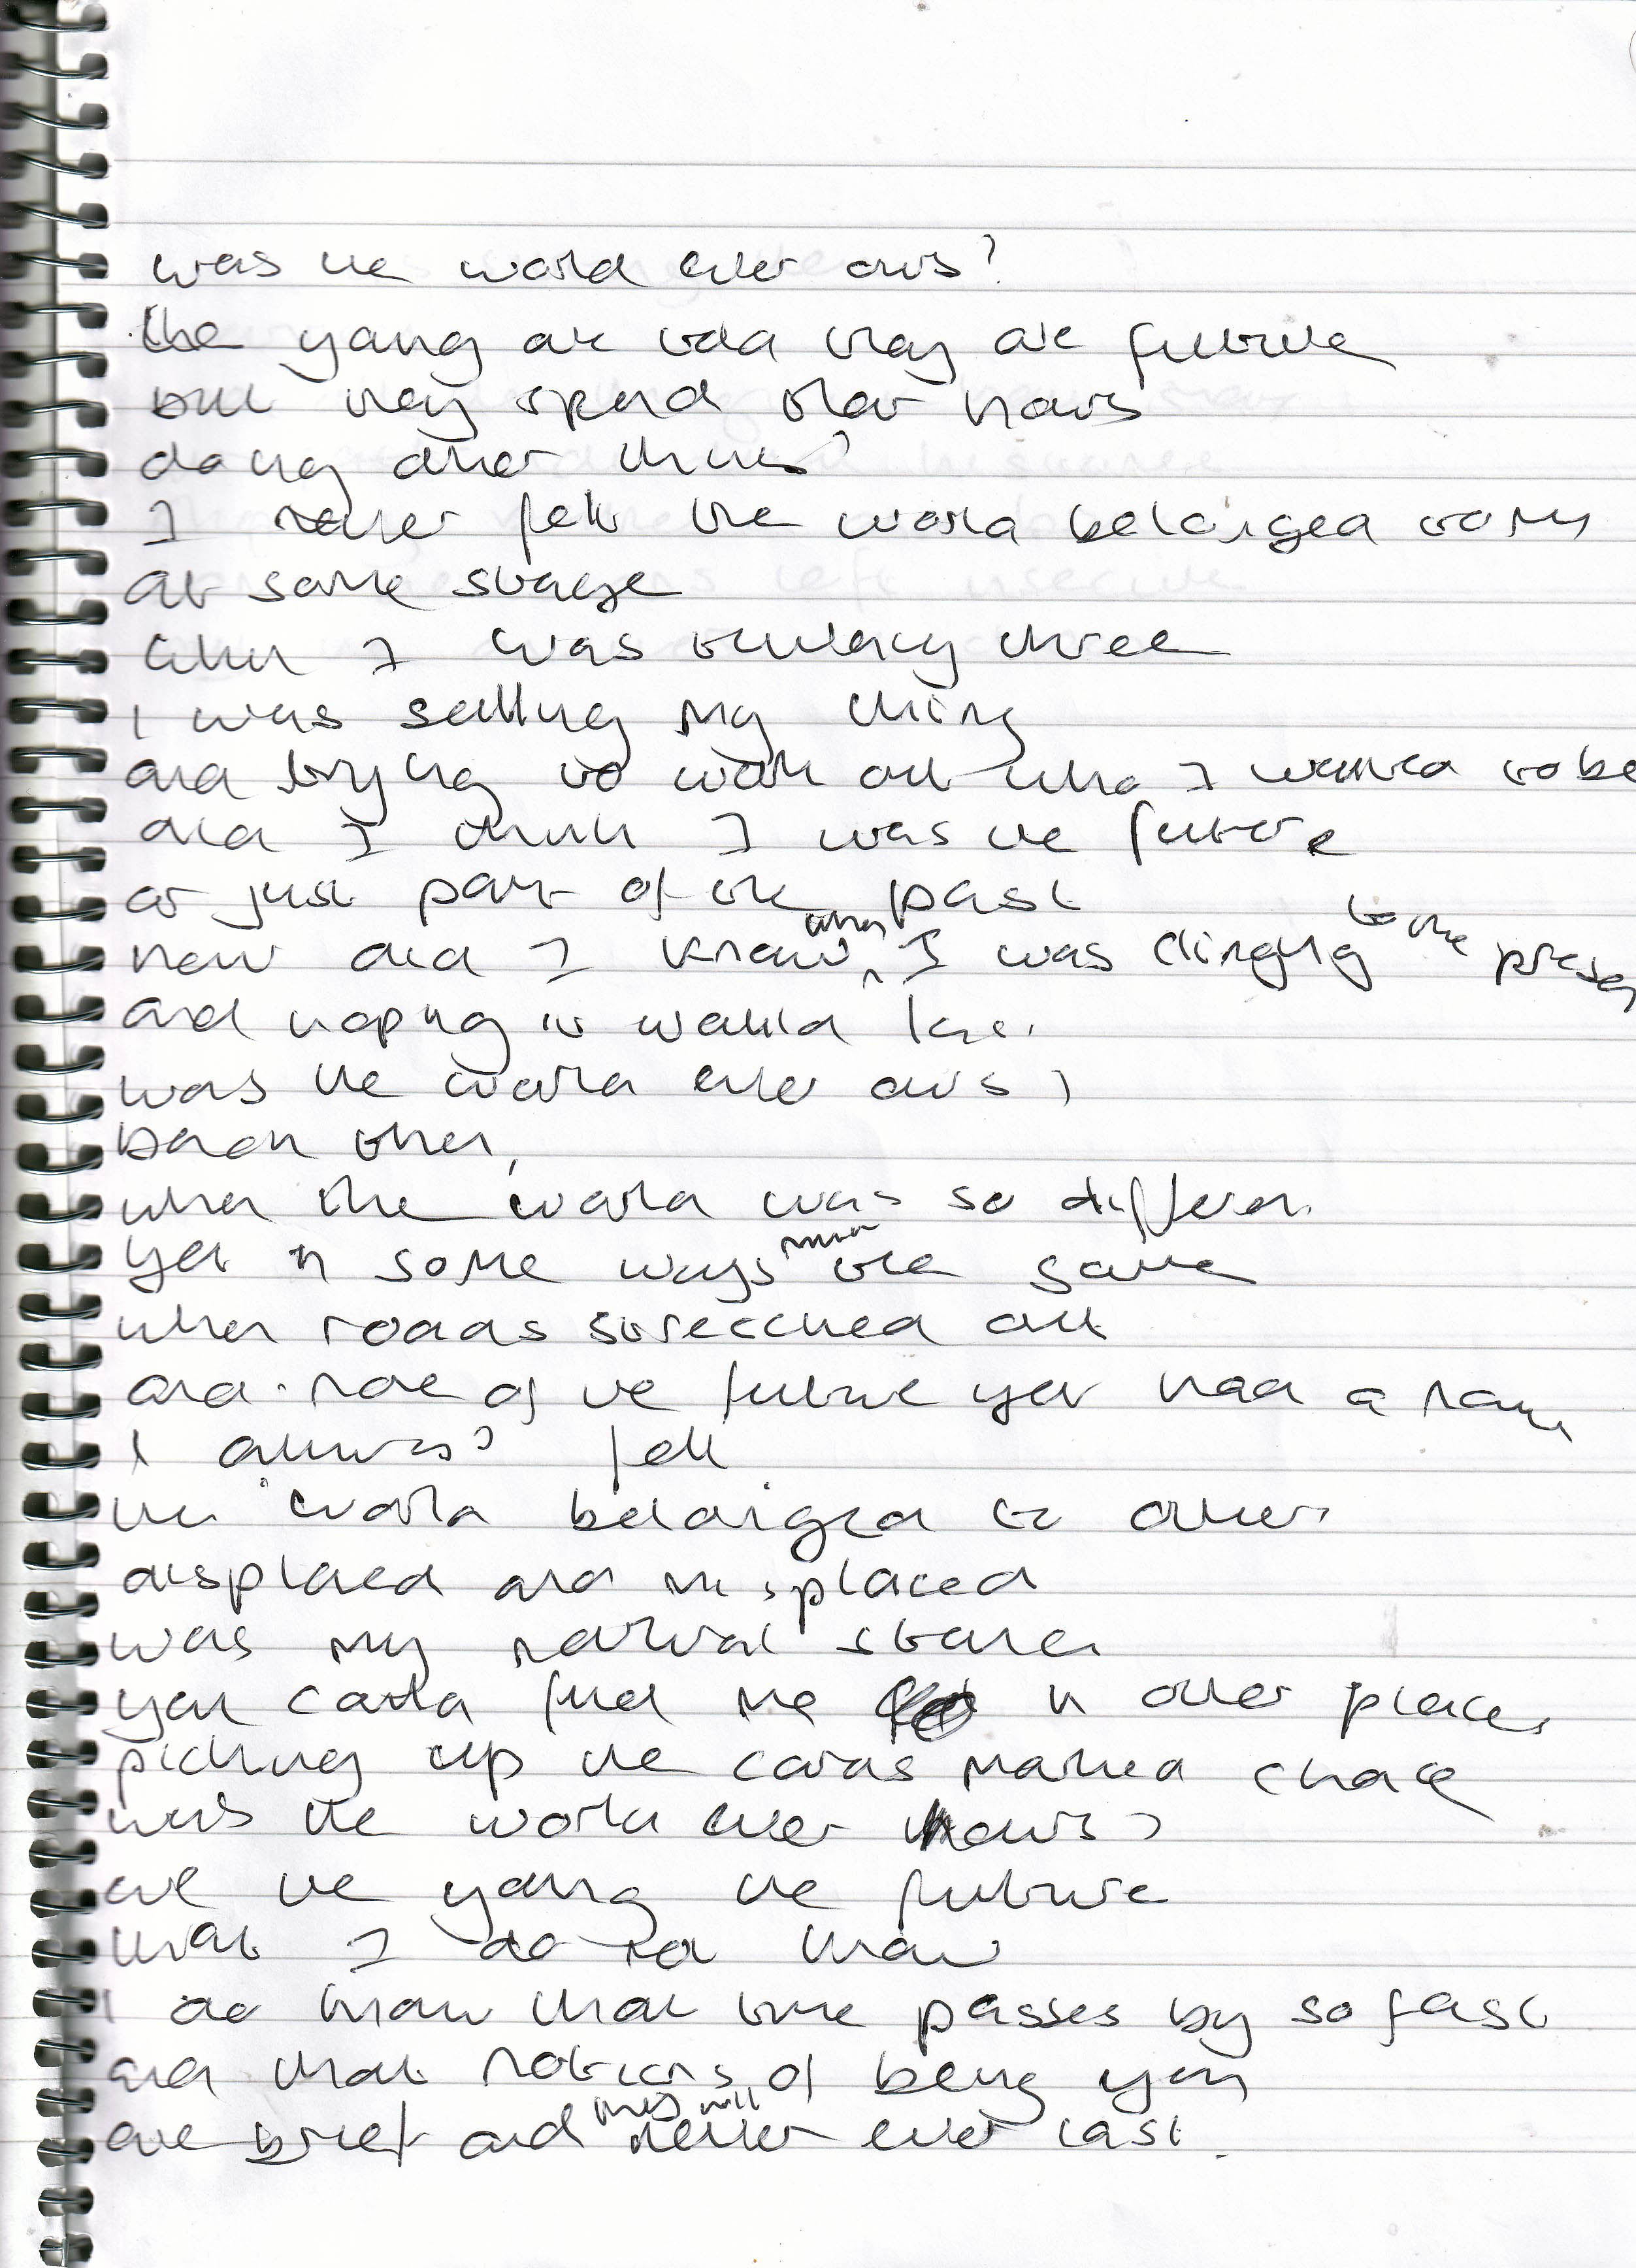 was the world ever ours?
the young are told they are future
but they spend their hours
doing other things
I never felt the world belonged to me
at some stage
when I was twenty three
I was selling my
and trying to work out who I wanted to be
did I think I was the future
or just part of the past
now did I know, when I was clinging to the present
and hoping it would last
was the world ever ours?
back then,
when the world was so different
yet in some ways much the same
when roads stretched out
and none of the future yet had a name
I always felt
the world belonged to others
displaced and misplaced
was my natural state
you could find me in other places
picking up the cards marked chance
was the world ever ours?
are the young the future
that I do not know
I do know that time passes by so fast
and that notions of being young
are brief and they will never ever last.